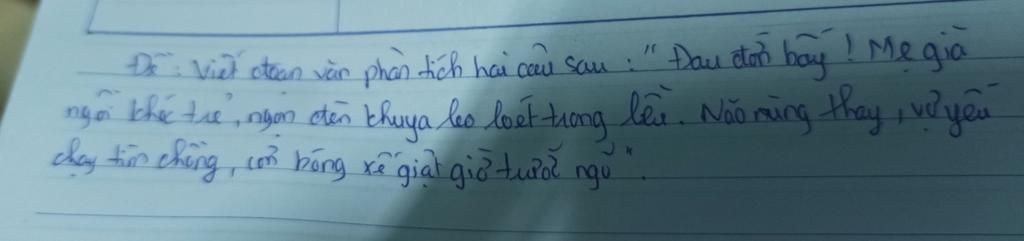 Đề: Viết đoạn văn phân tích hai câu sau: "Đau đớn bấy! Mẹ già
ngồi khóc trẻ, ngọn đèn khuya leo loét trong lều. Não nùng thay, vợ yếu
chạy tìm chồng, cơn bóng xế giật giờ trước ngõ".